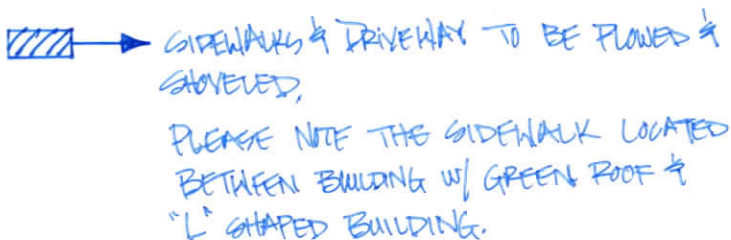 SIDEWALKS & DRIVEWAY TO BE PLOWED &
SHOVELED.
PLEASE NOTE THE SIDEWALK LOCATED
BETWEEN BUILDING W/ GREEN ROOF &
"L" SHAPED BUILDING.